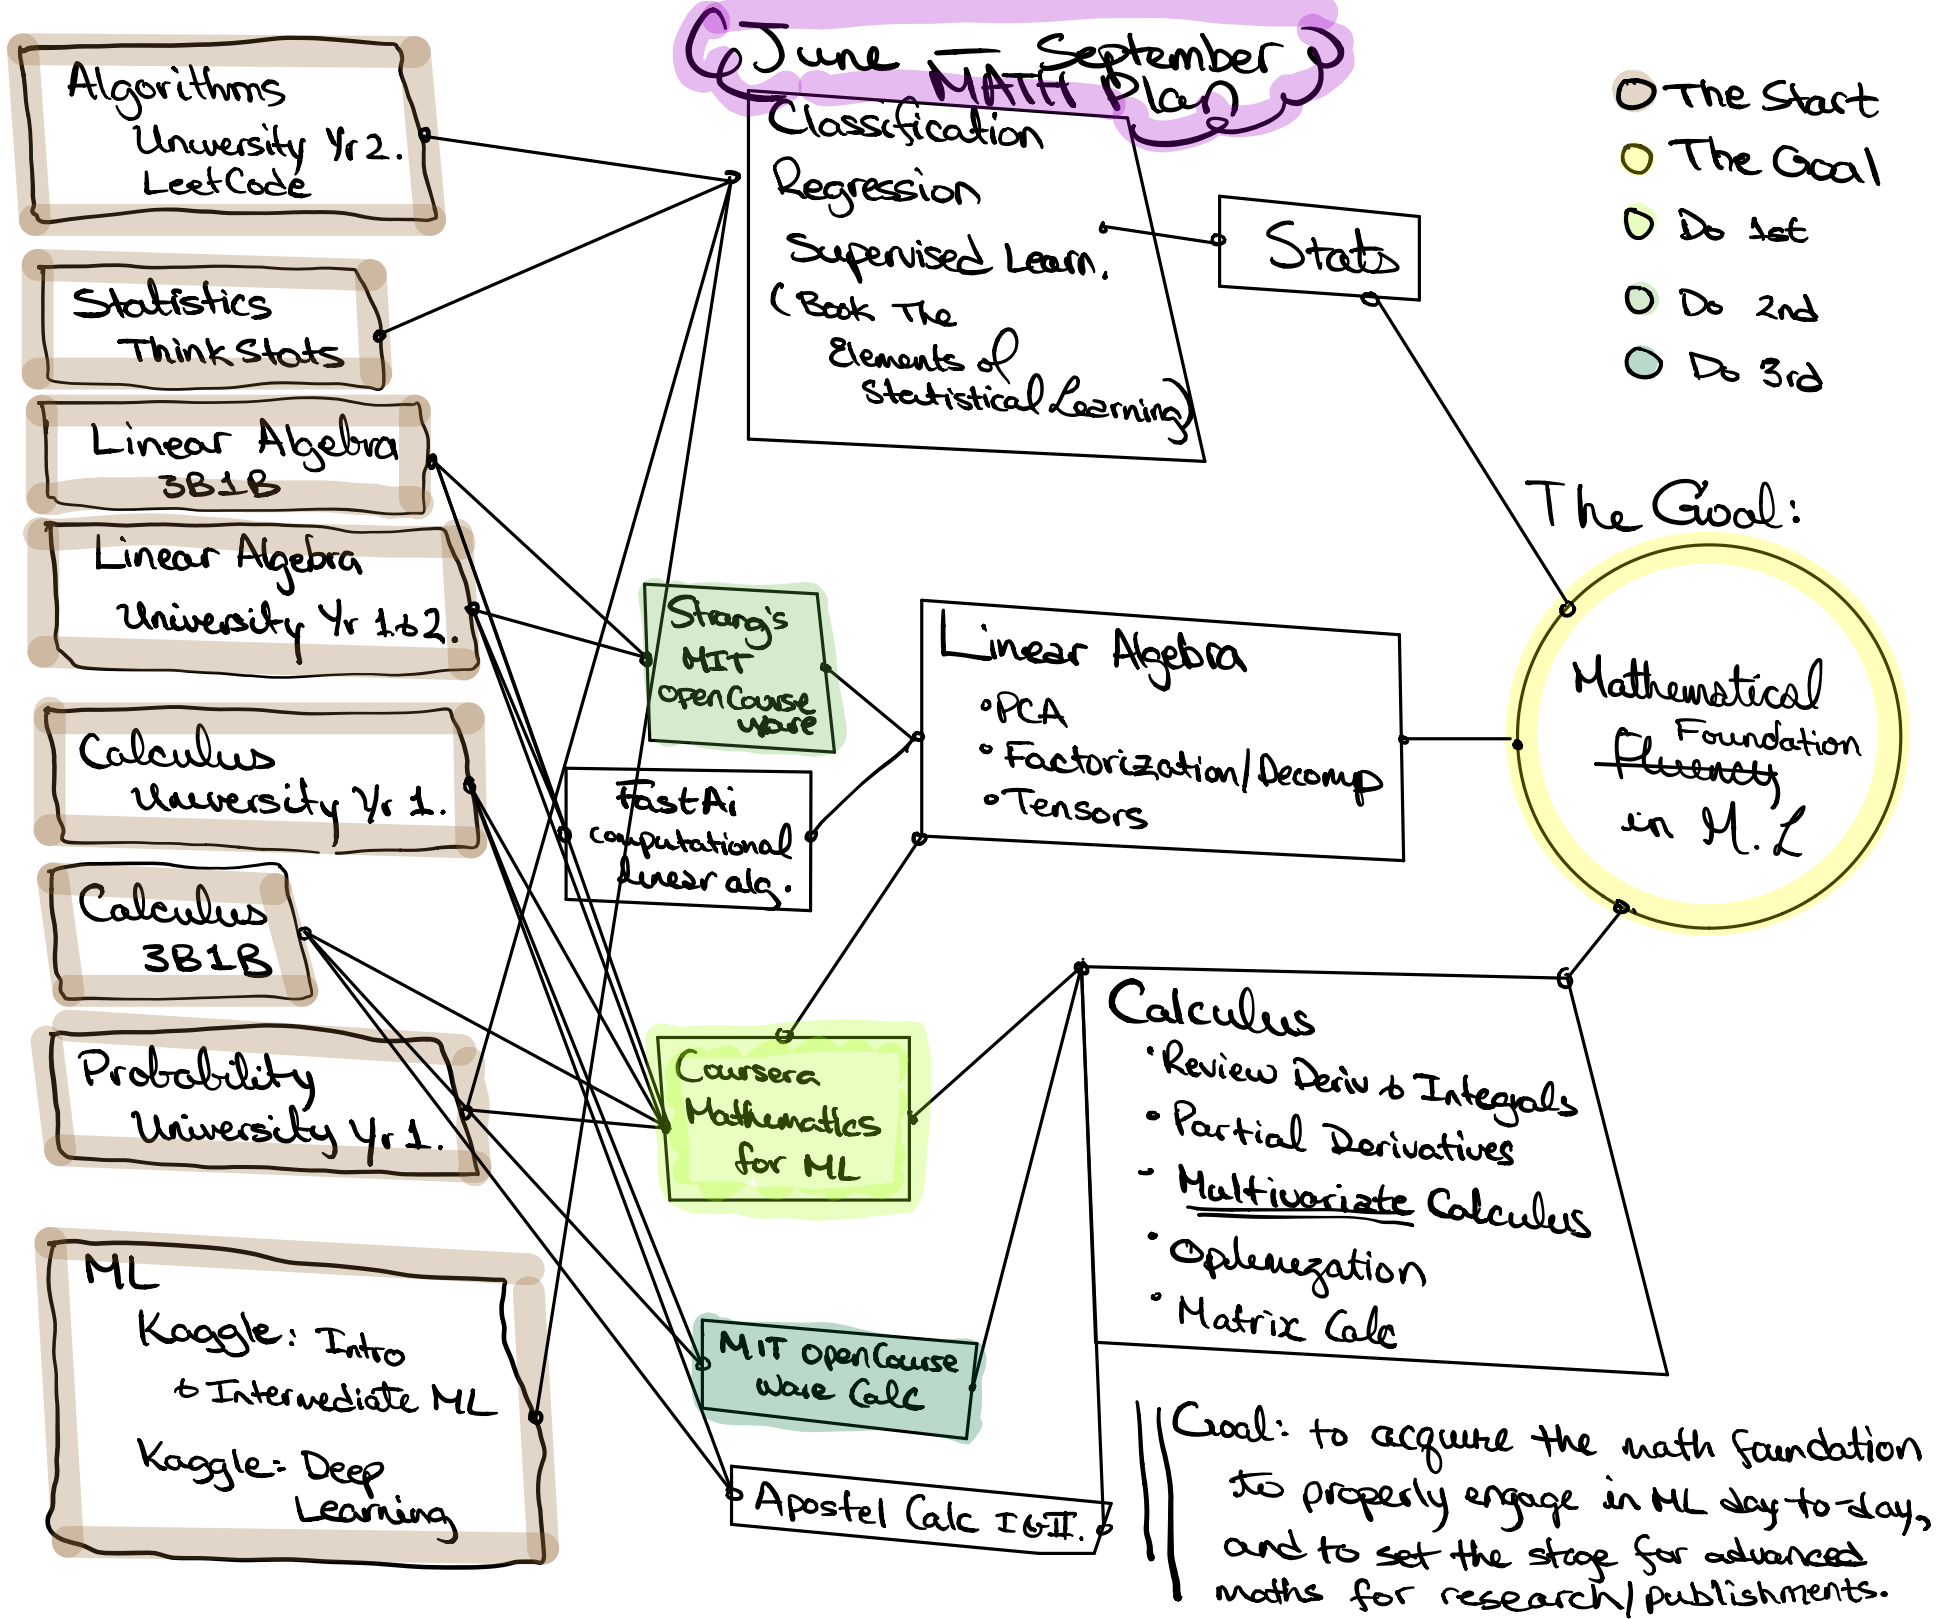 June — September
MATH Plan
Algorithms
University Yr 2.
LeetCode
Statistics
Think Stats
Linear Algebra
3B1B
Linear Algebra
University Yr 1 & 2.
Calculus
University Yr 1.
Calculus
3B1B
Probability
University Yr 1.
ML
Kaggle: Intro
& Intermediate ML
Kaggle: Deep
Learning
Classification
Regression
Supervised Learn.
(Book The
Elements of
Statistical Learning)
Stats
Strang's
MIT
openCourse
ware
FastAi
computational
linear alg.
Coursera
Mathematics
for ML
MIT openCourse
Ware Calc
Apostel Calc I & II.
Linear Algebra
• PCA
• Factorization/Decomp
• Tensors
Calculus
• Review Deriv & Integrals
• Partial Derivatives
- Multivariate Calculus
• Optimization
• Matrix Calc
The Start
The Goal
Do 1st
Do 2nd
Do 3rd
The Goal:
Mathematical
Foundation
Fluency
in M.L
Goal: to acquire the math foundation
to properly engage in ML day-to-day,
and to set the stage for advanced
maths for research/publishments.